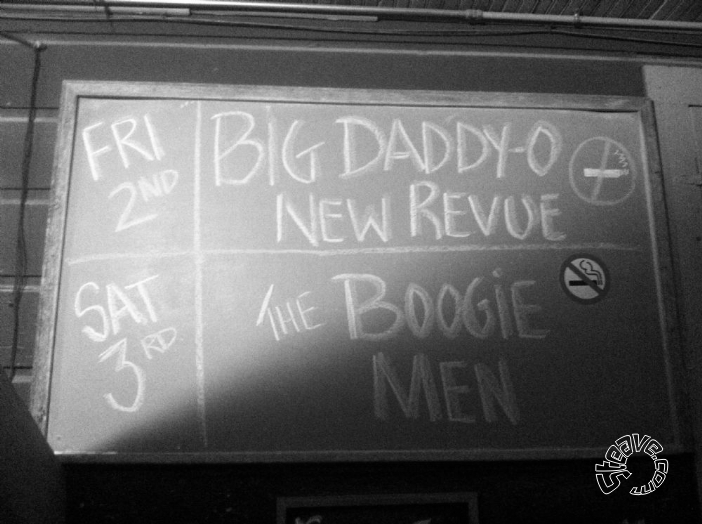 FRI
2ND
BIG DADDY-O
NEW REVUE
SAT
3RD
THE BOOGiE
MEN
Steave.com